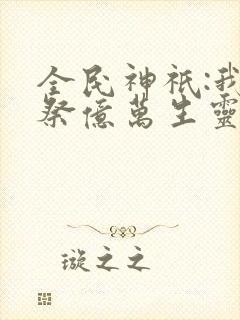 全民神祇:我
祭億萬生靈
璇之之